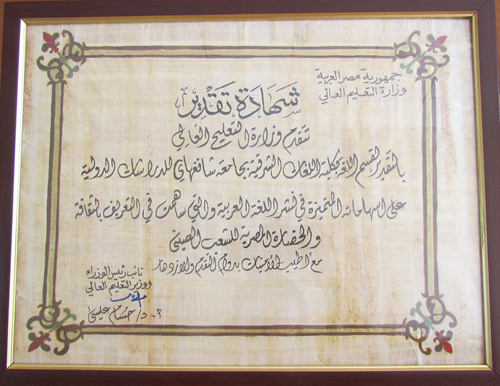 جمهورية مصر العربية
وزارة التعليم العالي
شهادة تقدير
تتقدم وزارة التعليم العالي
بالتقدير لقسم اللغة بكلية اللغات الشرقية بجامعة شانغهاي للدراسات الدولية
على إسهاماته المتميزة في نشر اللغة العربية والتي ساهمت في التعريف بالثقافة
والحضارة المصرية للشعب الصيني
مع أطيب الأمنيات بدوام التقدم والازدهار
نائب رئيس الوزراء
ووزير التعليم العالي
أ.د/ حسام عيسى